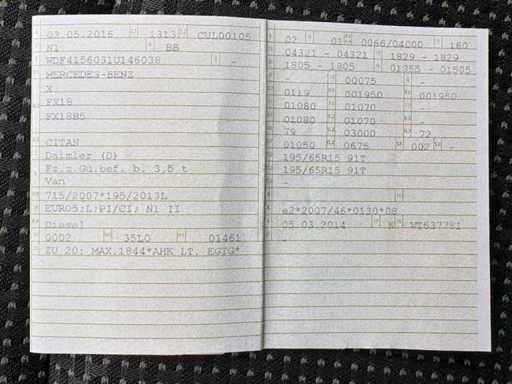 03.05.2016 1313 CUL00105
N1 BB
WDF4156031U146038 -
MERCEDES-BENZ
X
FX18
FX18B5
CITAN
Daimler (D)
Fz.z.Gü.bef. b. 3,5 t
Van
715/2007*195/2013L
EURO5;L;PI/CI; N1 II
Diesel
0002 35L0 01461
ZU 20: MAX.1844*AHK LT. EGTG*
02 01 0066/04000 160
04321 - 04321 1829 - 1829
1805 - 1805 01355 - 01505
- 00075 -
0119 001950 001950
01080 01070 -
01080 01070 -
79 03000 72
01050 0675 002 -
195/65R15 91T
195/65R15 91T
-
-
e2*2007/46*0130*08
05.03.2014 K
-